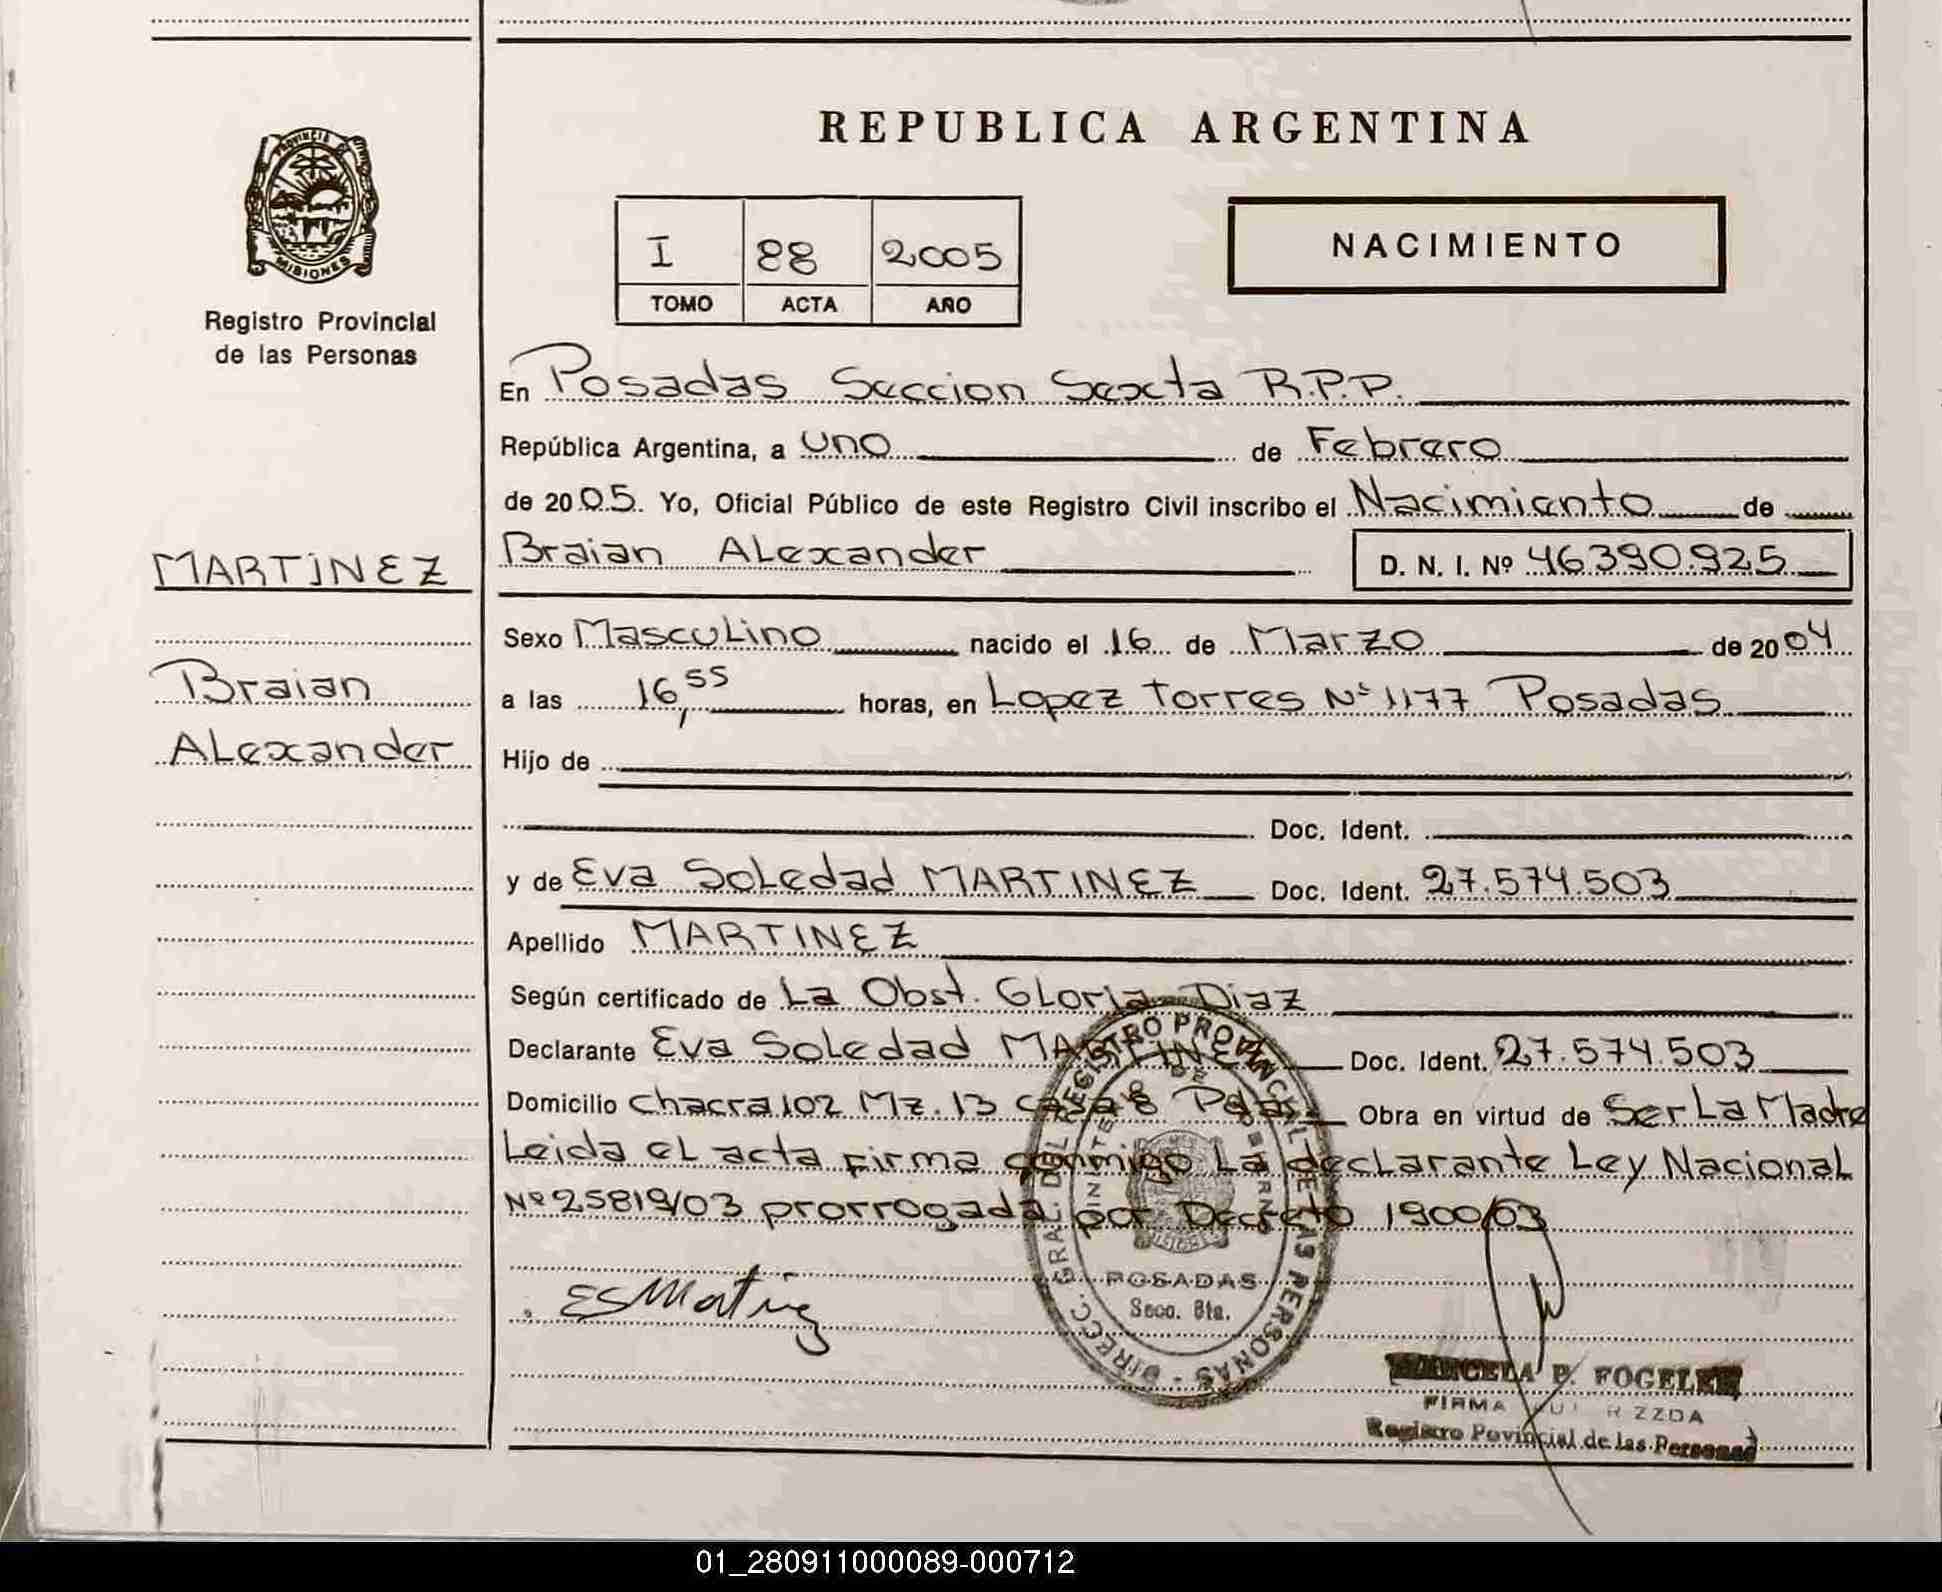 REPUBLICA ARGENTINA
PROVINCIA DE
MISIONES
Registro Provincial
de las Personas
I 88 2005
TOMO ACTA AÑO
NACIMIENTO
MARTINEZ
Braian
ALexander
En Posadas Seccion Sexta R.P.P.
República Argentina, a uno de Febrero
de 2005. Yo, Oficial Público de este Registro Civil inscribo el Nacimiento de
Braian ALexander D. N. I. Nº 46390.925
Sexo MascuLino nacido el 16 de Marzo de 2004
a las 16,55 horas, en Lopez Torres Nº 1177 Posadas
Hijo de
Doc. Ident.
y de Eva SoLedad MARTINEZ Doc. Ident. 27.574.503
Apellido MARTINEZ
Según certificado de La Obst. GLoria Diaz
Declarante Eva SoLedad MARTINEZ Doc. Ident. 27.574.503
Domicilio chacra 102 Mz. 13 casa 8 Pdas Obra en virtud de Ser La Madre
Leida eL acta firma conmigo La decLarante Ley NacionaL
Nº 25819/03 prorrogada por Decreto 1900/03
DIRECC. GRAL. DEL REGISTRO PROVINCIAL DE LAS PERSONAS
POSADAS
Secc. 6ta.
MARCELA P. FOGELER
FIRMA
Registro Povincial de las Personas
01_280911000089-000712